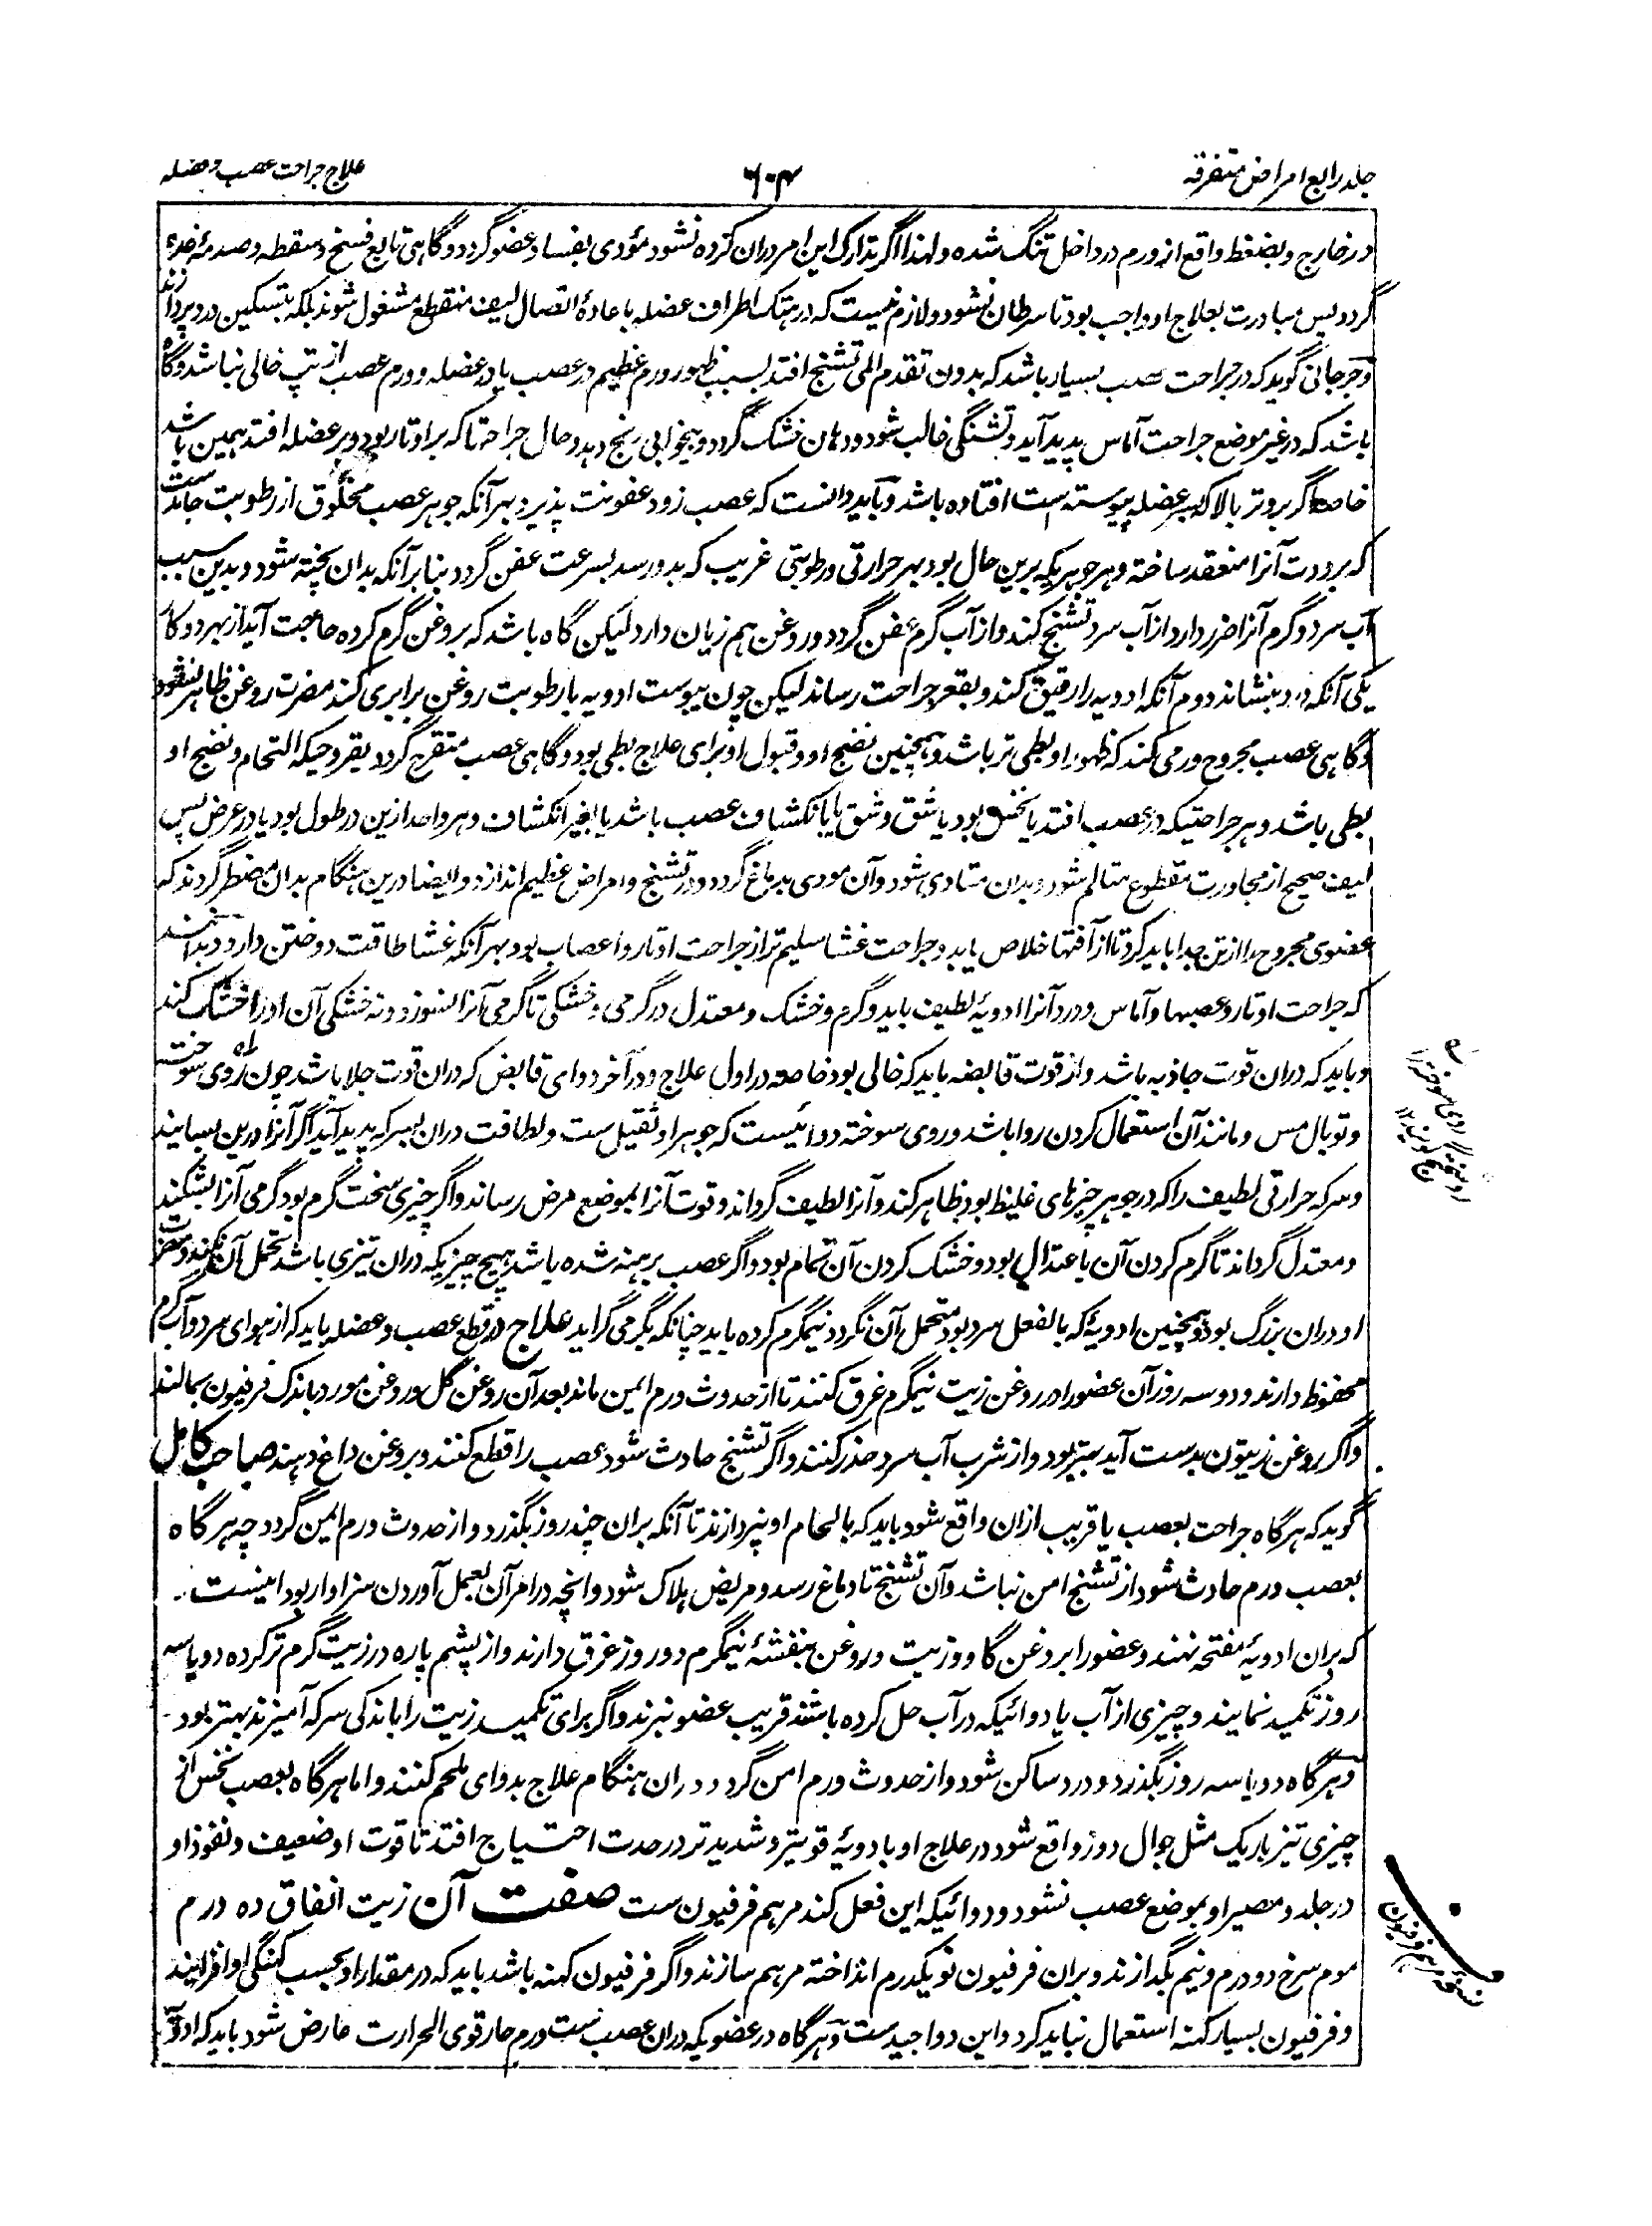 جلد رابع امراض متفرقه
۶۰۴
علاج جراحت عصب و عضله
در خارج و بضغط واقع از ورم در داخل تنگ شده و لهذا اگر تدارک این امر دران کرده نشود مؤدی بفساد عضو گردد و گاهی تابع فسخ و سقطه و صدمه
گردد پس مبادرت بعلاج او واجب بود تا سرطان نشود و لازم نیست که در هتک اطراف عضله باعادهٔ اتصال لیف منقطع مشغول شوند بلکه بتسکین درد پردازند
و جرجانی گوید که در جراحت عصب بسیار باشد که بدون تقدم المی تشنج افتد بسبب ظهور ورم عظیم در عصب یا در عضله و ورم عصب از تپ خالی نباشد و گاه
باشد که در غیر موضع جراحت آماس پدید آید و تشنگی غالب شود و دهان خشک گردد و بیخوابی رنج دهد و حال جراحتها که بر اوتار بود و بر عضله افتد همین باشد
خاصه اگر بر وتر بالا که بسر عضله پیوسته است افتاده باشد و باید دانست که عصب زود عفونت پذیرد بهر آنکه جوهر عصب مخلوق از رطوبت جامد است
که برودت آنرا منعقد ساخته و هر جوهریکه برین حال بود بهر حرارتی و رطوبتی غریب که بدو رسد بسرعت عفن گردد بنابر آنکه بدان پخته شود و بدین سبب
آب سرد و گرم آنرا ضرر دارد از آب سرد تشنج کند و از آب گرم عفن گردد و روغن هم زیان دارد لیکن گاه باشد که بروغن گرم کرده حاجت آید از بهر دو کار
یکی آنکه درد بنشاند دوم آنکه ادویه را رقیق کند و بقعر جراحت رساند لیکن چون یبوست ادویه با رطوبت روغن برابری کند مضرت روغن ظاهر نشود
و گاهی عصب مجروح ورمی کند که ظهور او بطی تر باشد و همچنین نضج او و قبول او برای علاج بطی بود و گاهی عصب متقرح گردد بقروحیکه التحام و نضج او
بطی باشد و هر جراحتیکه در عصب افتد یا نخس بود یا شق و شق یا با انکشاف عصب باشد یا بغیر انکشاف و هر واحد ازین در طول بود یا در عرض پس
لیف صحیح از مجاورت مقطوع متالم شود و بدان متاذی شود و آن مودی بدماغ گردد و در تشنج و امراض عظیم اندازد و ایضا درین هنگام بدان مضطر گردند که
عضوی مجروح را از تن جدا باید کرد تا از آفتها خلاص یابد و جراحت غشا سلیم تر از جراحت اوتار و اعصاب بود بهر آنکه غشا طاقت دوختن دارد و بدانند
که جراحت اوتار و عصبها و آماس و درد آنرا ادویهٔ لطیف باید و گرم و خشک و معتدل در گرمی و خشکی تا گرمی آنرا نسوزد و نه خشکی آن او را خشک کند
و باید که دران قوت جاذبه باشد و از قوت قابضه باید که خالی بود خاصه در اول علاج و در آخر دوای قابض که دران قوت جلا باشد چون روی سوخته
و توبال مس و مانند آن استعمال کردن روا باشد و روی سوخته دوائیست که جوهر او ثقیل ست و لطافت دران بسرکه پدید آید اگر آنرا درین بسایند
و سرکه حرارتی لطیف را که در جوهر چیزهای غلیظ بود ظاهر کند و آنرا لطیف گرداند و قوت آنرا بموضع مرض رساند و اگر چیزی سخت گرم بود گرمی آنرا بشکند
و معتدل گرداند تا گرم کردن آن باعتدال بود و خشک کردن آن تمام بود و اگر عصب برهنه شده باشد هیچ چیزیکه دران تیزی باشد تحمل آن نکند و مضرت
او دران بزرگ بود و همچنین ادویهٔ که بالفعل سرد بود متحمل آن نگردد نیمگرم کرده باید چنانکه بگرمی گراید علاج در قطع عصب و عضله باید که از هوای سرد و آب گرم
محفوظ دارند و دو سه روز آن عضو را در روغن زیت نیمگرم غرق کنند تا از حدوث ورم ایمن ماند بعد آن روغن گل و روغن مورد باندک فرفیون بمالند
و اگر روغن زیتون بدست آید بهتر بود و از شرب آب سرد حذر کنند و اگر تشنج حادث شود عصب را قطع کنند و بروغن داغ دهند صاحب کامل
گوید که هرگاه جراحت بعصب یا قریب ازان واقع شود باید که بالحام او نپردازند تا آنکه بران چند روز بگذرد و از حدوث ورم ایمن گردد چه هرگاه
بعصب ورم حادث شود از تشنج امن نباشد و آن تشنج تا دماغ رسد و مریض هلاک شود و انچه در امر آن بعمل آوردن سزاوار بود اینست
که بران ادویهٔ مفتحه نهند و عضو را بروغن گاو و زیت و روغن بنفشهٔ نیمگرم دو روز غرق دارند و از پشم پاره در زیت گرم تر کرده دو یا سه
روز تکمید نمایند و چیزی از آب یا دوائیکه در آب حل کرده باشند قریب عضو نبرند و اگر برای تکمید زیت را باندکی سرکه آمیزند بهتر بود
و هرگاه دو یا سه روز بگذرد و درد ساکن شود و از حدوث ورم امن گردد دران هنگام علاج بدوای ملحم کنند و اما هرگاه بعصب نخس از
چیزی تیز باریک مثل جوال دوز واقع شود در علاج او بادویهٔ قویتر و شدیدتر در حدت احتیاج افتد تا قوت او ضعیف و نفوذ او
در جلد و مصیر او بموضع عصب نشود و دوائیکه این فعل کند مرهم فرفیون ست صفت آن زیت انفاق ده درم
موم سرخ دو درم و نیم بگدازند و بران فرفیون نو یکدرم انداخته مرهم سازند و اگر فرفیون کهنه باشد باید که در مقدار او بحسب کهنگی او افزایند
و فرفیون بسیار کهنه استعمال نباید کرد و این دوا جید ست و هرگاه در عضویکه دران عصب ست ورم حار قوی الحرارت عارض شود باید که ادویه
نسخه مرهم فرفیون